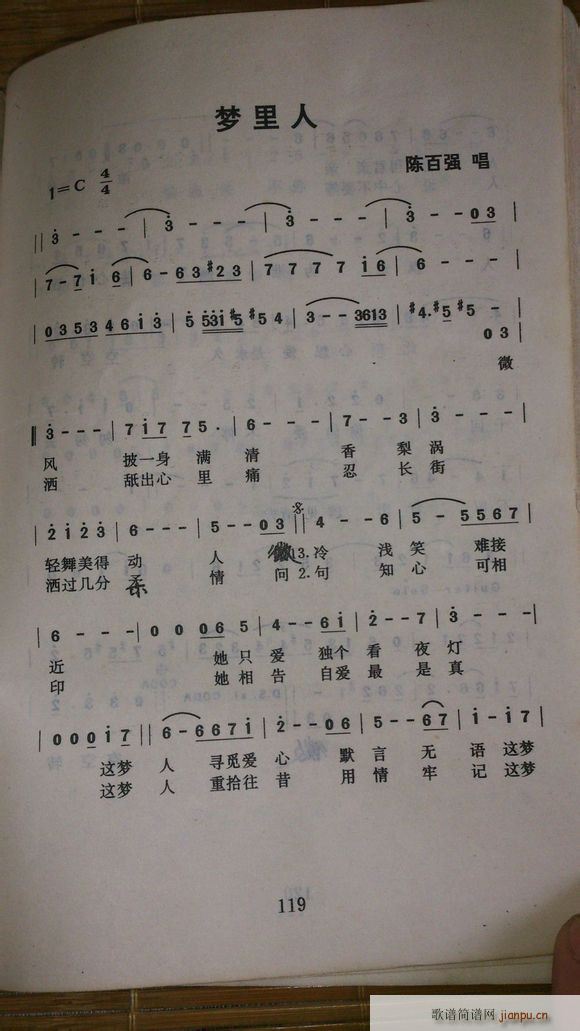 梦里人
陈百强 唱
1=C 4/4
‖ 3 - - - | 3 - - - | 3 - - - | 3 - - 0 3 |
7 - 7 i 6 | 6 - 6 3 #2 3 | 7 7 7 7 i 6 | 6 - - - |
0 3 5 3 4 6 i 3 | 5 531#5 #5 4 | 3 - - 3613 | #4. #5 #5 -
0 3 |
微
3 - - - | 7 i 7 7 5. | 6 - - - | 7 - - 3 | 3 - - - |
风 披一身 满 清 香 梨 涡
洒 舐出心 里 痛 忍 长 街
| 2 i 2 3 | 6 - - - | 5 - - 0 3 ‖ 4 - - 6 | 5 - 5 5 6 7 |
轻舞美得 动 人 微 3.冷 浅 笑 难接
洒过几分 柔 情 问 2.句 知 心 可相
| 6 - - - | 0 0 0 6 5 | 4 - - 6 i | 2 - - 7 | 3 - - - |
近 她 只 爱 独个 看 夜 灯
印 她 相 告 自爱 最 是 真
| 0 0 0 i 7 ‖ 6 - 6 6 7 i | 2 - - 0 6 | 5 - - 6 7 | i - i 7 |
这梦 人 寻觅爱 心 默 言 无 语 这梦
这梦 人 重拾往 昔 用 情 牢 记 这梦
119
歌谱简谱网 jianpu.cn